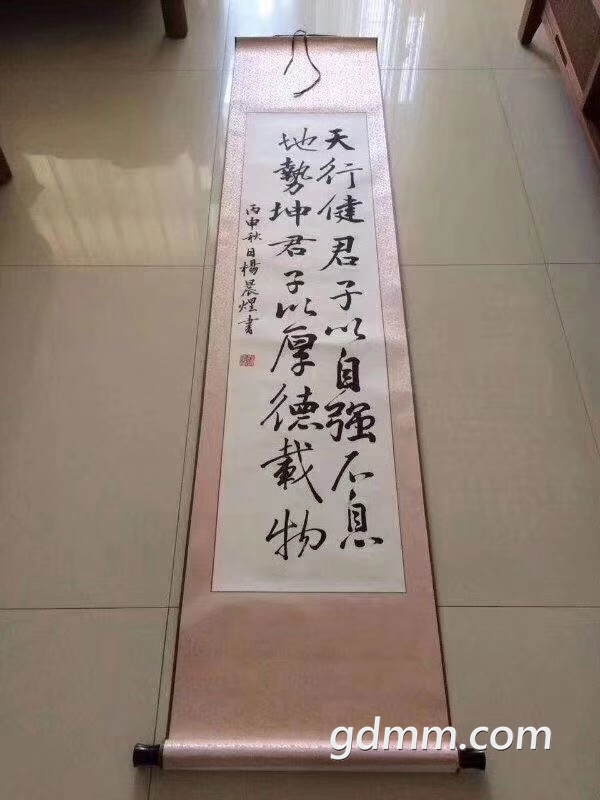 天行健君子以自强不息
地勢坤君子以厚德載物
丙申秋日楊晨煜書
gdmm.com